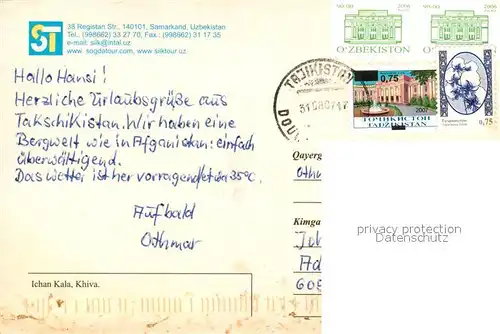 ST
38 Registan Str., 140101, Samarkand, Uzbekistan
Tel.: (998662) 33 27 70, Fax.: (998662) 31 17 35
e-mail: silk@intal.uz
www. sogdatour.com, www.silktour.uz
90-00 2006
90-00 2006
O'ZBEKISTON
Hallo Hansi!
Herzliche Urlaubsgrüße aus
Takschikistan. Wir haben eine
Bergwelt wie in Afganistan: einfach
überwältigend.
Das Wetter ist hervorragend etwa 35°C.
Aufbald
Othmar
TAJIKISTAN
0,75
2007
ТОҶИКИСТОН
TADZIKISTAN
0,75
Qayerg
Othm
Kimga
Joh
Ad
608
privacy protection
Datenschutz
Ichan Kala, Khiva.